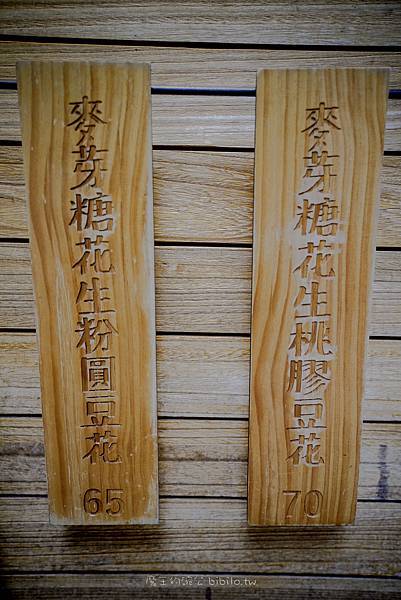 麥芽糖花生粉圓豆花
65
麥芽糖花生桃膠豆花
70
bibilo.tw